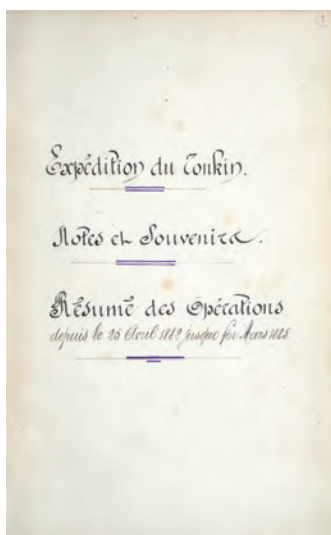 Expédition du Tonkin.
Notes et Souvenirs.
Résumé des Opérations
depuis le 25 Avril 1882 jusque fin Mars 1885